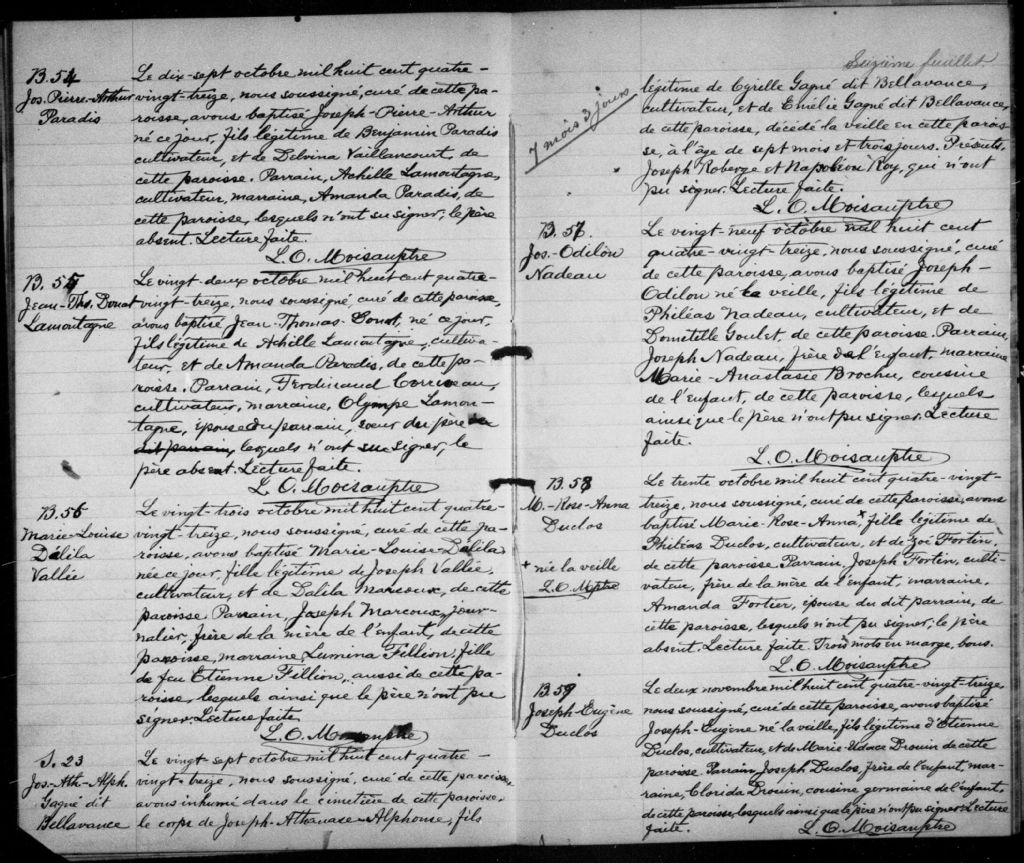 B. 54
Jos. Pierre-Arthur
Paradis
Le dix-sept octobre mil huit cent quatre-
vingt-treize, nous soussigné, curé de cette pa-
roisse, avons baptisé Joseph-Pierre-Arthur
né ce jour, fils légitime de Benjamin Paradis
cultivateur, et de Delvina Vaillancourt, de
cette paroisse. Parrain, Achille Lamontagne,
cultivateur, marraine, Amanda Paradis, de
cette paroisse, lesquels n'ont su signer, le père
absent. Lecture faite.
L. O. Moisauptre
B. 55
Jean-Ths. Donat
Lamontagne
Le vingt-deux octobre mil huit cent quatre-
vingt-treize, nous soussigné, curé de cette paroisse,
avons baptisé Jean-Thomas-Donat, né ce jour,
fils légitime de Achille Lamontagne, cultiva-
teur, et de Amanda Paradis, de cette pa-
roisse. Parrain, Ferdinand Corriveau,
cultivateur, marraine, Olympe Lamon-
tagne, épouse du parrain, soeur du père
dit parrain, lesquels n'ont su signer, le
père absent. Lecture faite.
L. O. Moisauptre
B. 56
Marie-Louise
Dalila
Vallée
Le vingt-trois octobre mil huit cent quatre-
vingt-treize, nous soussigné, curé de cette pa-
roisse, avons baptisé Marie-Louise-Dalila
née ce jour, fille légitime de Joseph Vallée,
cultivateur, et de Dalila Marcoux, de cette
paroisse. Parrain, Joseph Marcoux, jour-
nalier, frère de la mère de l'enfant, de cette
paroisse, marraine, Lumina Fillion, fille
de feu Etienne Fillion, aussi de cette pa-
roisse, lesquels ainsi que le père n'ont pu
signer. Lecture faite.
L. O. Moisauptre
S. 23
Jos.-Ath.-Alph.
Gagné dit
Bellavance
Le vingt sept octobre mil huit cent quatre-
vingt-treize, nous soussigné, curé de cette paroisse,
avons inhumé dans le cimetière de cette paroisse,
le corps de Joseph-Athanase-Alphonse, fils
feuillet
7 mois 3 jours
légitime de Cyrille Gagné dit Bellavance,
cultivateur, et de Emélie Gagné dit Bellavance,
de cette paroisse, décédé la veille en cette parois
se, à l'âge de sept mois et trois jours. Présents,
Joseph Roberge et Napoléon Roy, qui n'ont
pu signer. Lecture faite.
L. O. Moisauptre
B. 57.
Jos.-Odilon
Nadeau
Le vingt-neuf octobre mil huit cent
quatre-vingt-treize, nous soussigné, curé
de cette paroisse, avons baptisé Joseph-
Odilon né la veille, fils légitime de
Philéas Nadeau, cultivateur, et de
Domitelle Goulet, de cette paroisse. Parrain,
Joseph Nadeau, frère de l'enfant, marraine
Marie-Anastasie Brochu, cousine
de l'enfant, de cette paroisse, lesquels
ainsi que le père n'ont pu signer. Lecture
faite.
L. O. Moisauptre
B. 58
M.-Rose-Anna
Duclos
+ née la veille
L. O. Mptre
Le trente octobre mil huit cent quatre-vingt-
treize, nous soussigné, curé de cette paroisse, avons
baptisé Marie-Rose-Anna,+ fille légitime de
Philéas Duclos, cultivateur, et de Zoé Fortin,
de cette paroisse. Parrain, Joseph Fortin, culti-
vateur, frère de la mère de l'enfant, marraine,
Amanda Fortier, épouse du dit parrain, de
cette paroisse, lesquels n'ont pu signer, le père
absent. Lecture faite. Trois mots en marge, bons.
L. O. Moisauptre
B. 59
Joseph-Eugène
Duclos
Le deux novembre mil huit cent quatre-vingt-treize,
nous soussigné, curé de cette paroisse, avons baptisé
Joseph-Eugène né la veille, fils légitime d'Etienne
Duclos, cultivateur, et de Marie Drouin de cette
paroisse. Parrain, Joseph Duclos, frère de l'enfant, mar-
raine, Clorida Drouin, cousine germaine de l'enfant,
de cette paroisse, lesquels ainsi que le père n'ont pu signer. Lecture
faite.
L. O. Moisauptre